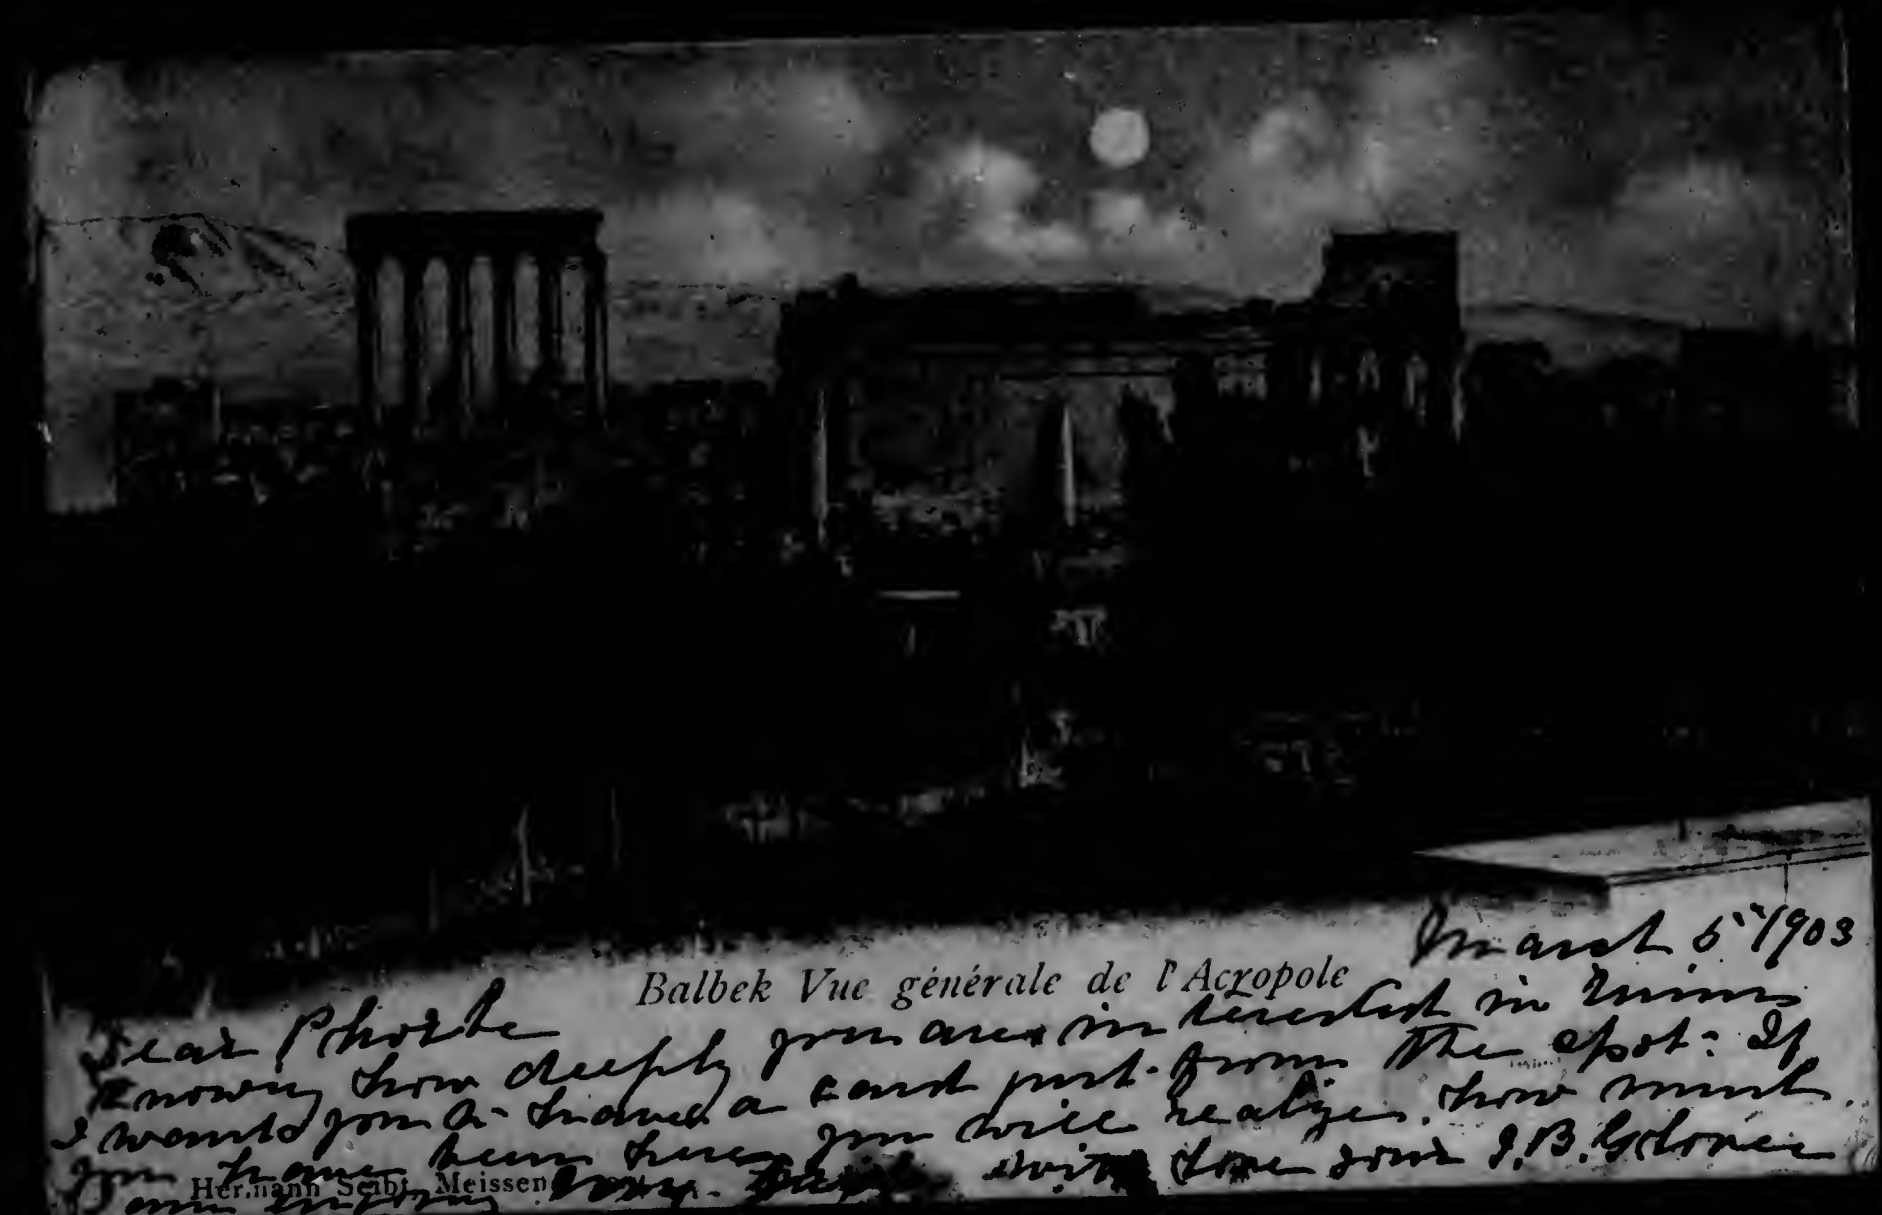 March 5" 1903
Balbek Vue générale de l'Acropole
Dear Phoebe
Knowing how deeply you are interested in ruins
I want you to have a card just from the spot. If
you have been here you will realize how much
I am enjoying every with love your J. B.
Hermann Seibt, Meissen